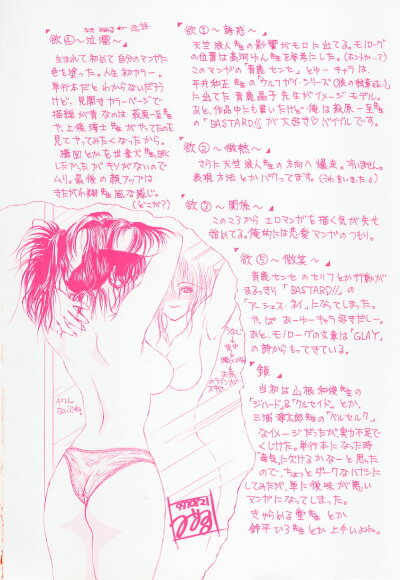 欲①～誘惑～
天竺浪人先生の影響がモロに出てる。モノローグ
の位置は高河ゆん先生を参考にした。(ホントか…?)
このマンガの「青鹿センセ」とゆーキャラは、
平井和正先生の「ウルフガイ・シリーズ(狼の紋章etc.)」
に出てた青鹿晶子先生がイメージモデル。
あと、作品中にも書いたけど俺は萩原一至先生
の「BASTARD!!」が大好き♡バイブルです。
欲②～微熱～
さらに天竺浪人先生の方向へ爆走。すいません。
表現方法とかパクってます。
欲③～関係～
このころからエロマンガを描く気が失せ
始めてる。俺的には恋愛マンガのつもり。
欲④～泣濡～
生まれて初めて自分のマンガに
色を塗った。人生初カラー。
単行本だとわからないだろう
けど、見開きカラーページで
描線が青なのは萩原一至先生
や、上條淳士先生がやってたの正
見てやってみたくなったから。
構図とかを世良犬先生ぽく
したかったがキリがないので
ムリ。最後の顔アップは
きたがわ翔先生風な感じ。
(どこが?)
欲⑤～微笑～
青鹿センセのセリフとか行動が
まるっきり「BASTARD!!」の
「アーシェス・ネイ」になってしまった。
やっぱあーゆーキャラ好きだしー。
あと、モノローグの文章は「GLAY」
の詩からもってきている。
鎖
当初は山根和俊先生の
「ジハード」&「クルセイド」とか、
三浦建太郎先生の「ベルセルク」
なイメージだったが実力不足で
くじけた。単行本になった時
「毒気に欠けるかなー」と思った
ので、ちょっとダークなハナシに
してみたが、単に後味が悪い
マンガになってしまった。
きゃらめる堂先生とか
鈴平ひろ先生とか上手いよね。
うなじ
↓
背中
↓
↓
お尻
のラインがスキ